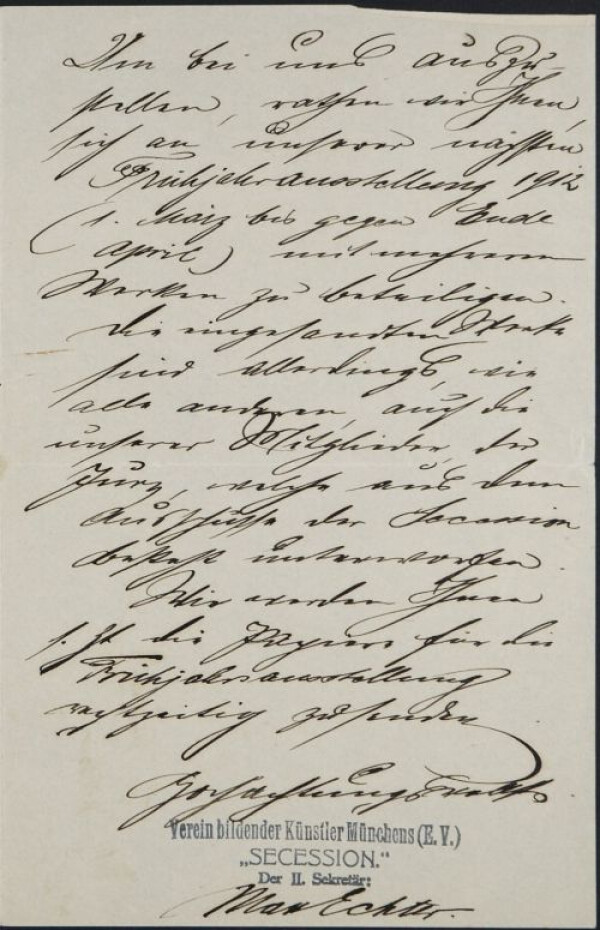 Um bei uns auszu-
stellen, rathen wir Ihnen,
sich an unserer nächsten
Frühjahrausstellung 1912
(1. März bis gegen Ende
April) mit mehreren
Werken zu beteiligen.
Die eingesandten Werke
sind allerdings, wie
alle anderen, auch die
unserer Mitglieder, der
Jury, welche aus dem
Ausschusse der Secession
besteht unterworfen.
Wir werden Ihnen
s. Zt. die Papiere für die
Frühjahrsausstellung
rechtzeitig zusenden
Hochachtungsvollst
Verein bildender Künstler Münchens (E. V.)
„SECESSION."
Der II. Sekretär:
Max Echter.